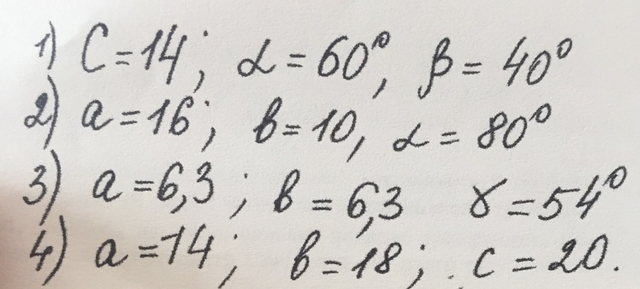 1) C=14; α=60°, β=40°
2) a=16; в=10, α=80°
3) a=6,3; в=6,3 γ=54°
4) a=14; в=18; c=20.